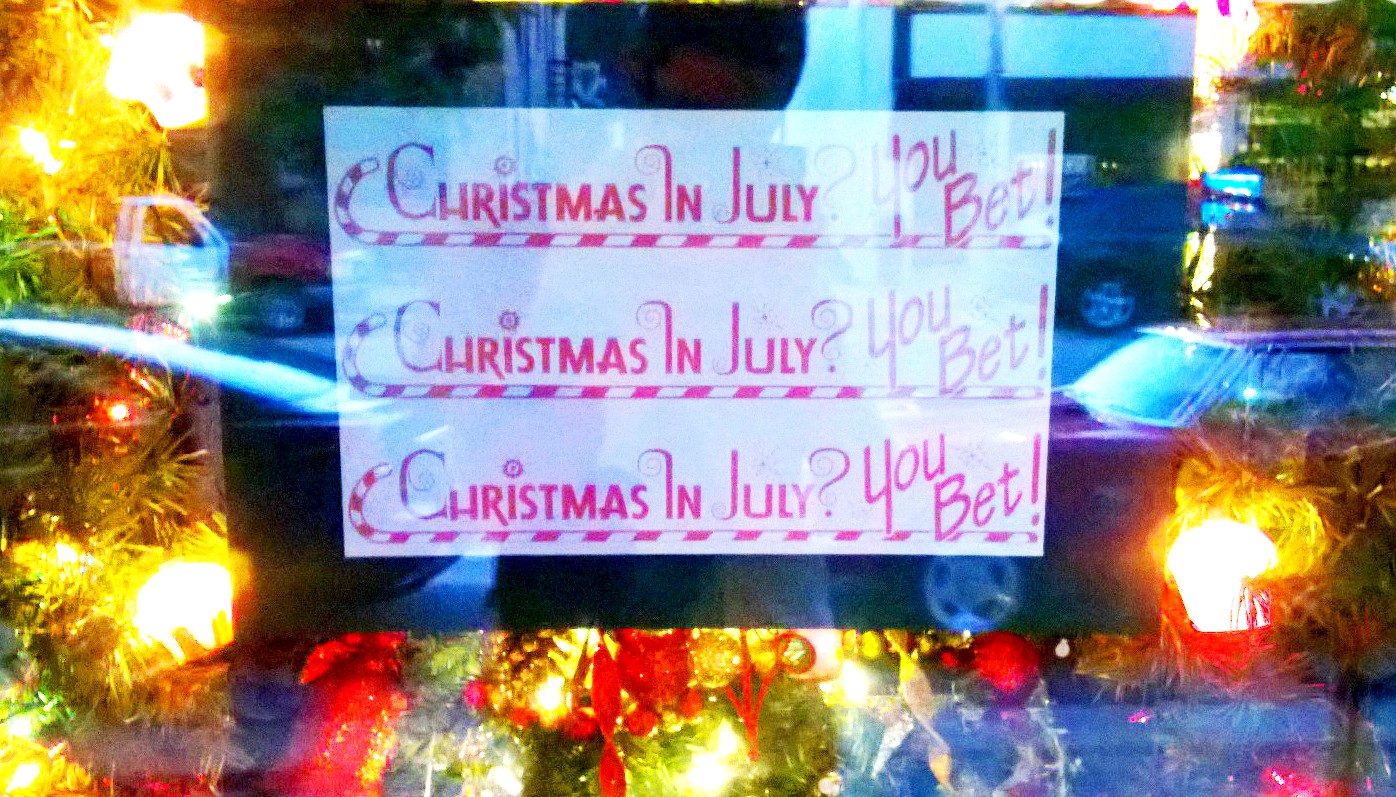 Christmas In July? You Bet!
Christmas In July? You Bet!
Christmas In July? You Bet!